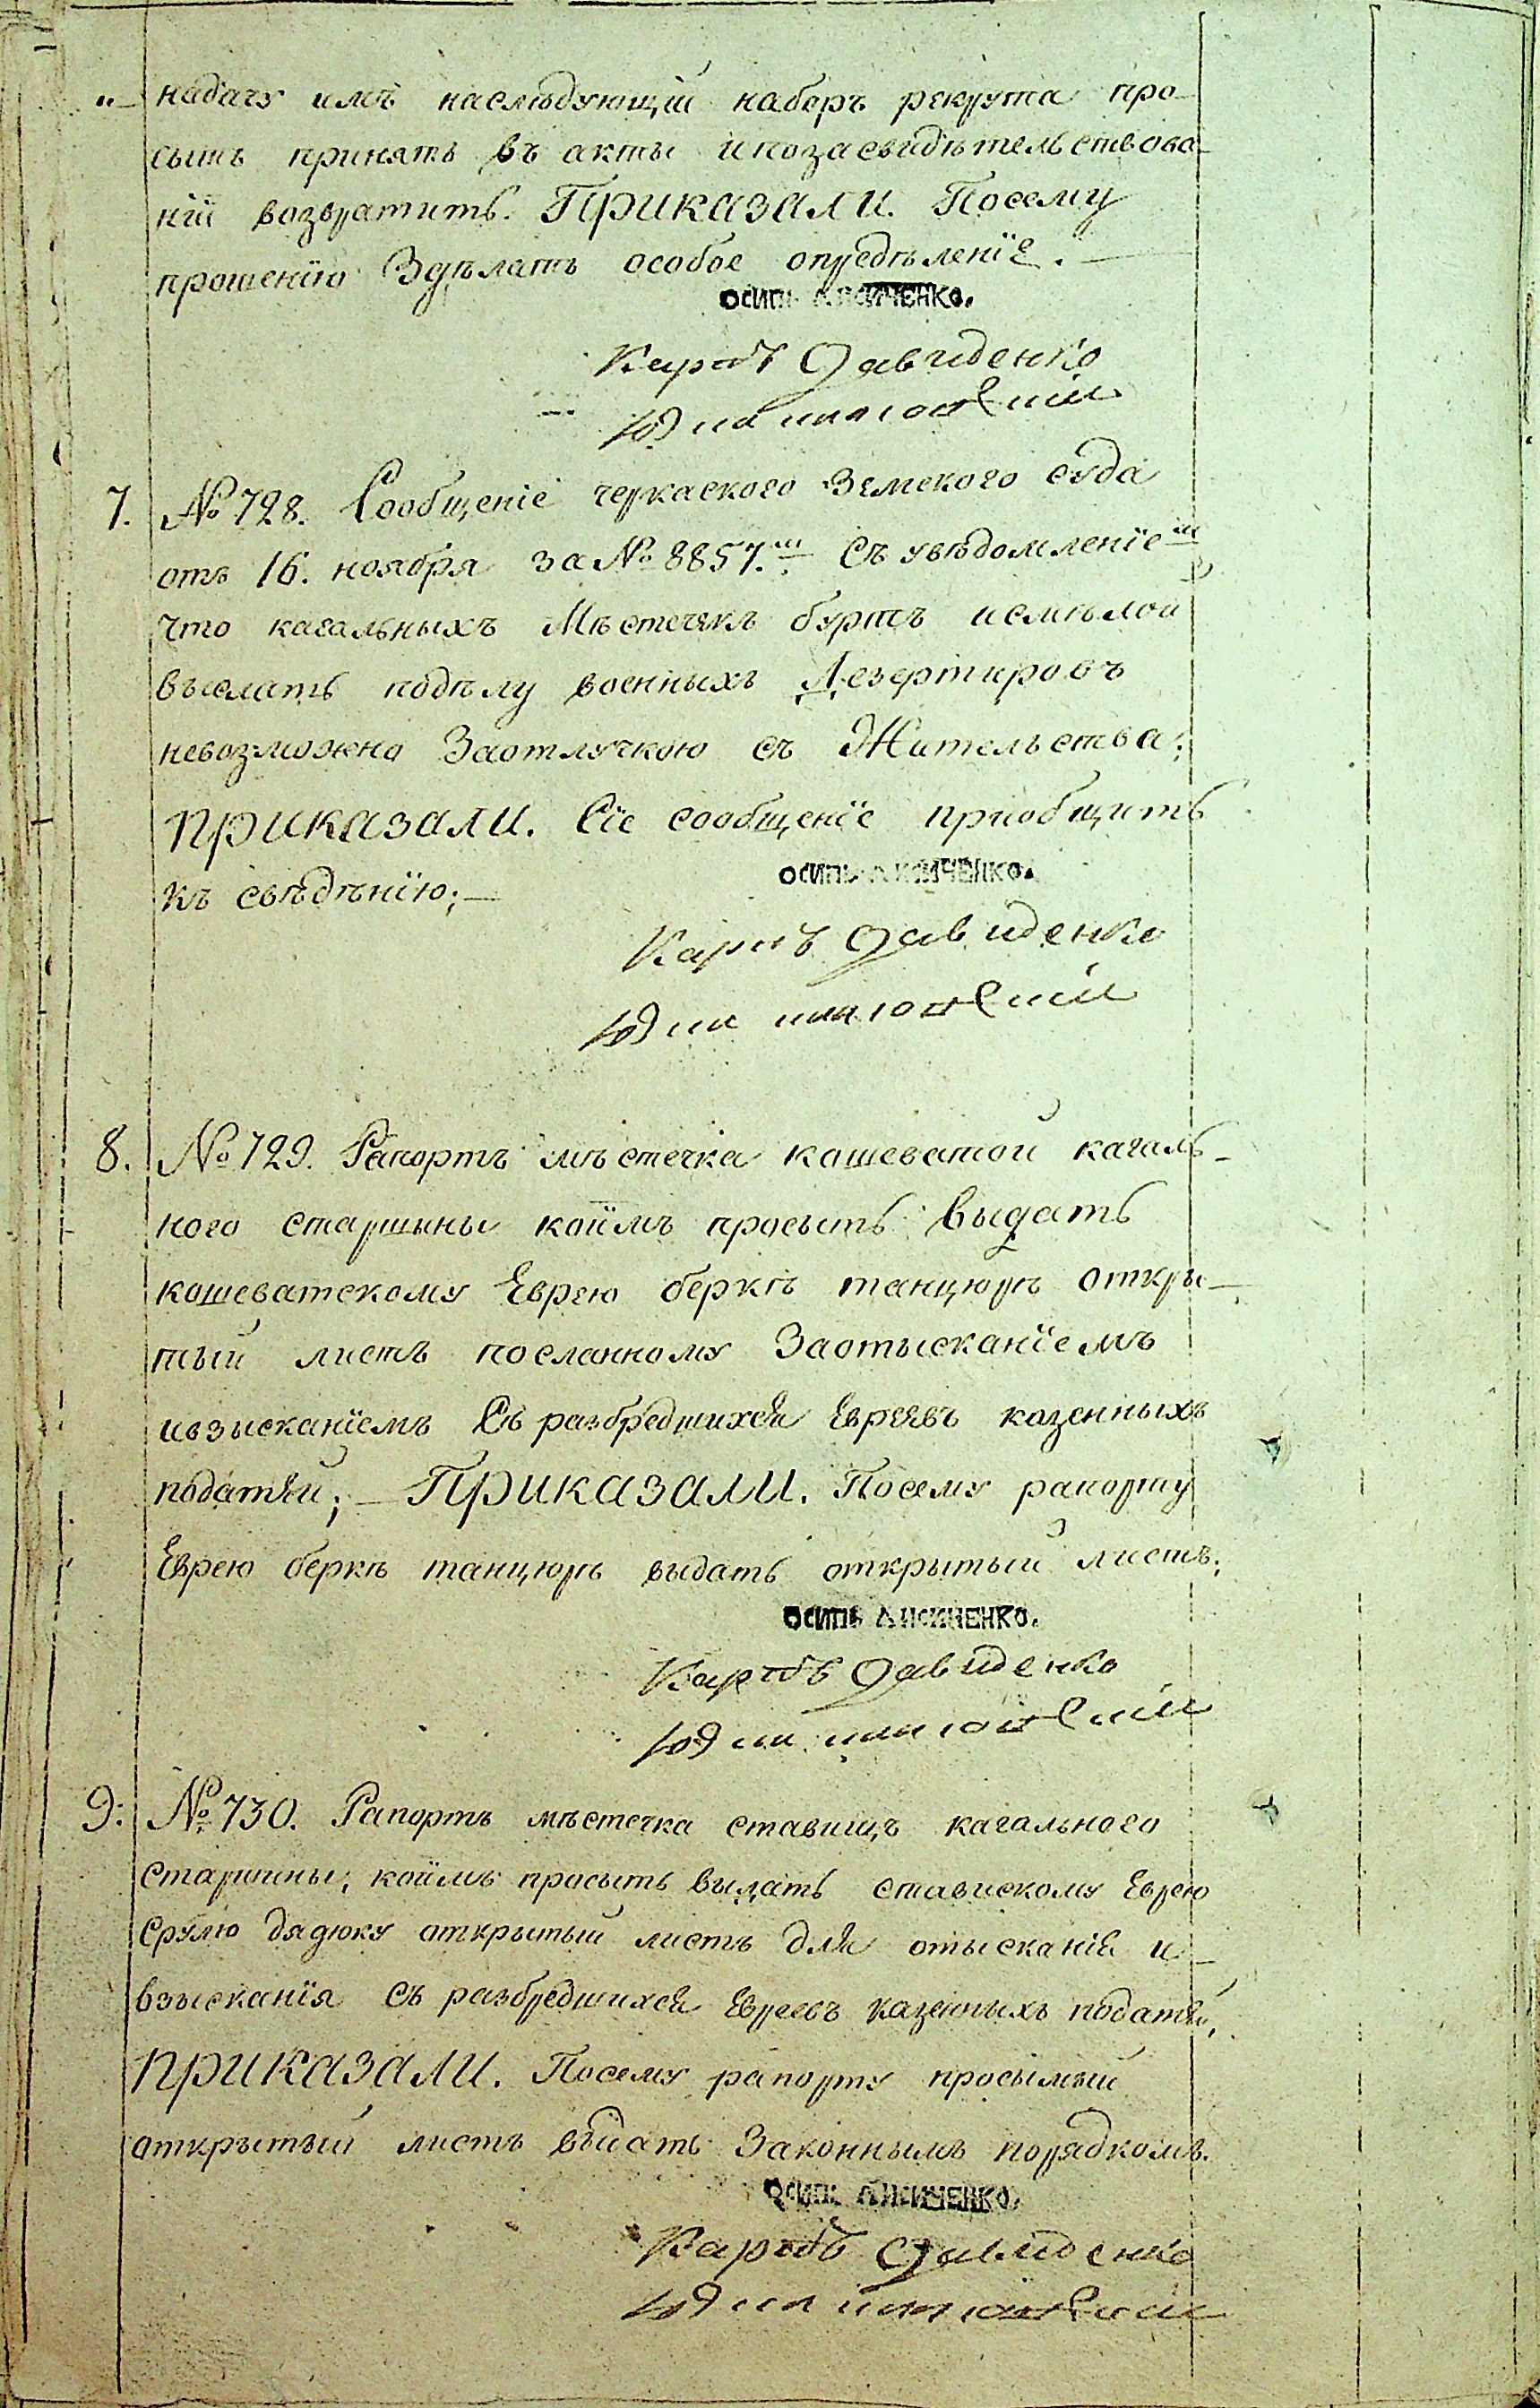 надачу имъ наслѣдующій наборъ рекрута про-
сытъ принять въ акты ипозасвидѣтельствова-
ніи возвратить. Приказали. Посему
прошенію Здѣлать особое опредѣленіе.
ОСИПЪ ЛИСИЧЕНКО.
Карпъ Давиденко
7. № 728. Сообщеніе черкаского Земского суда
отъ 16. ноября за № 8857.м Съ увѣдомленіем
что кагальныхъ Мѣстечкъ буртъ исмѣлой
выслать подѣлу военныхъ Дезертировъ
невозможно Заотлучкою съ Жительства;
приказали. Сіе сообщеніе приобщить
къ свѣдѣнію;—
ОСИПЪ ЛИСИЧЕНКО.
Карпъ Давиденко
8. № 729. Рапортъ мѣстечка кошеватой кагаль-
ного старшины коимъ просытъ выдать
кошеватскому Еврею беркѣ танцюрѣ откры-
тый листъ посланному Заотысканіемъ
ивзысканіемъ Съ разбредшихся Евреевъ казенныхъ
податей; — Приказали. Посему рапорту
Еврею беркѣ танцюрѣ выдать открытый листъ;
ОСИПЪ ЛИСИЧЕНКО.
Карпъ Давиденко
9: № 730. Рапортъ мѣстечка ставищъ кагального
старшины; коимъ просытъ выдать ставискому Еврею
Срулю дядюку открытый листъ для отысканія и-
взысканія съ разбредшихся Евреевъ казенныхъ податей,
приказали. Посему рапорту просымый
открытый листъ выдать Законнымъ порядкомъ.
ОСИПЪ ЛИСИЧЕНКО.
Карпъ Давиденко